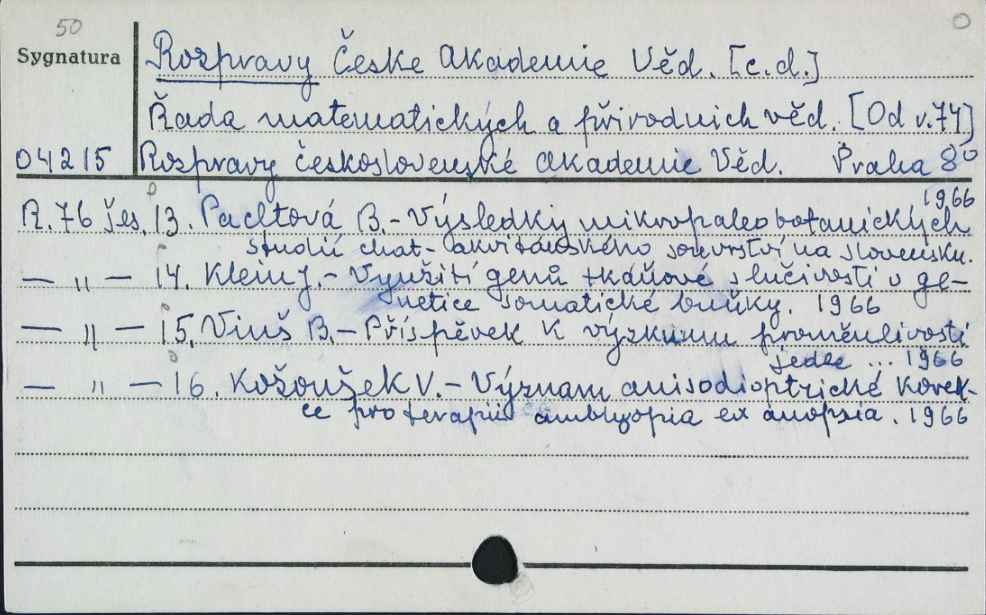 50
O
Sygnatura
Rozpravy České Akademie Věd. [c.d.]
Řada matematických a přirodnich věd. [Od r. 74]
04215 Rozpravy československé Akademie Věd. Praha 8°
R. 76 ses. 13. Pacltová B. - Výsledky mikropaleobotanických 1966
studií chat - akvitánského souvrství na Slovensku.
— „ — 14. Klein J. - Využití genů tkáňové slučivosti v ge-
netice somatické buňky. 1966
— „ — 15. Vinš B. - Příspěvek k výzkumu proměnlivosti
jedle ... 1966
— „ — 16. Kožoušek V. - Význam anisodioptrické korek-
ce pro terapii amblyopia ex anopsia. 1966